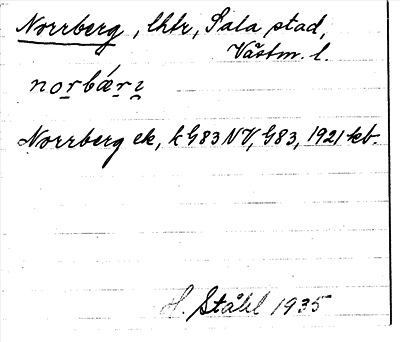 Norrberg, lhtr, Sala stad,
Västm. l.
norbǽrɿ
Norrberg ek, k G83 NV, G83, 1921 kb.
H. Ståhl 1935